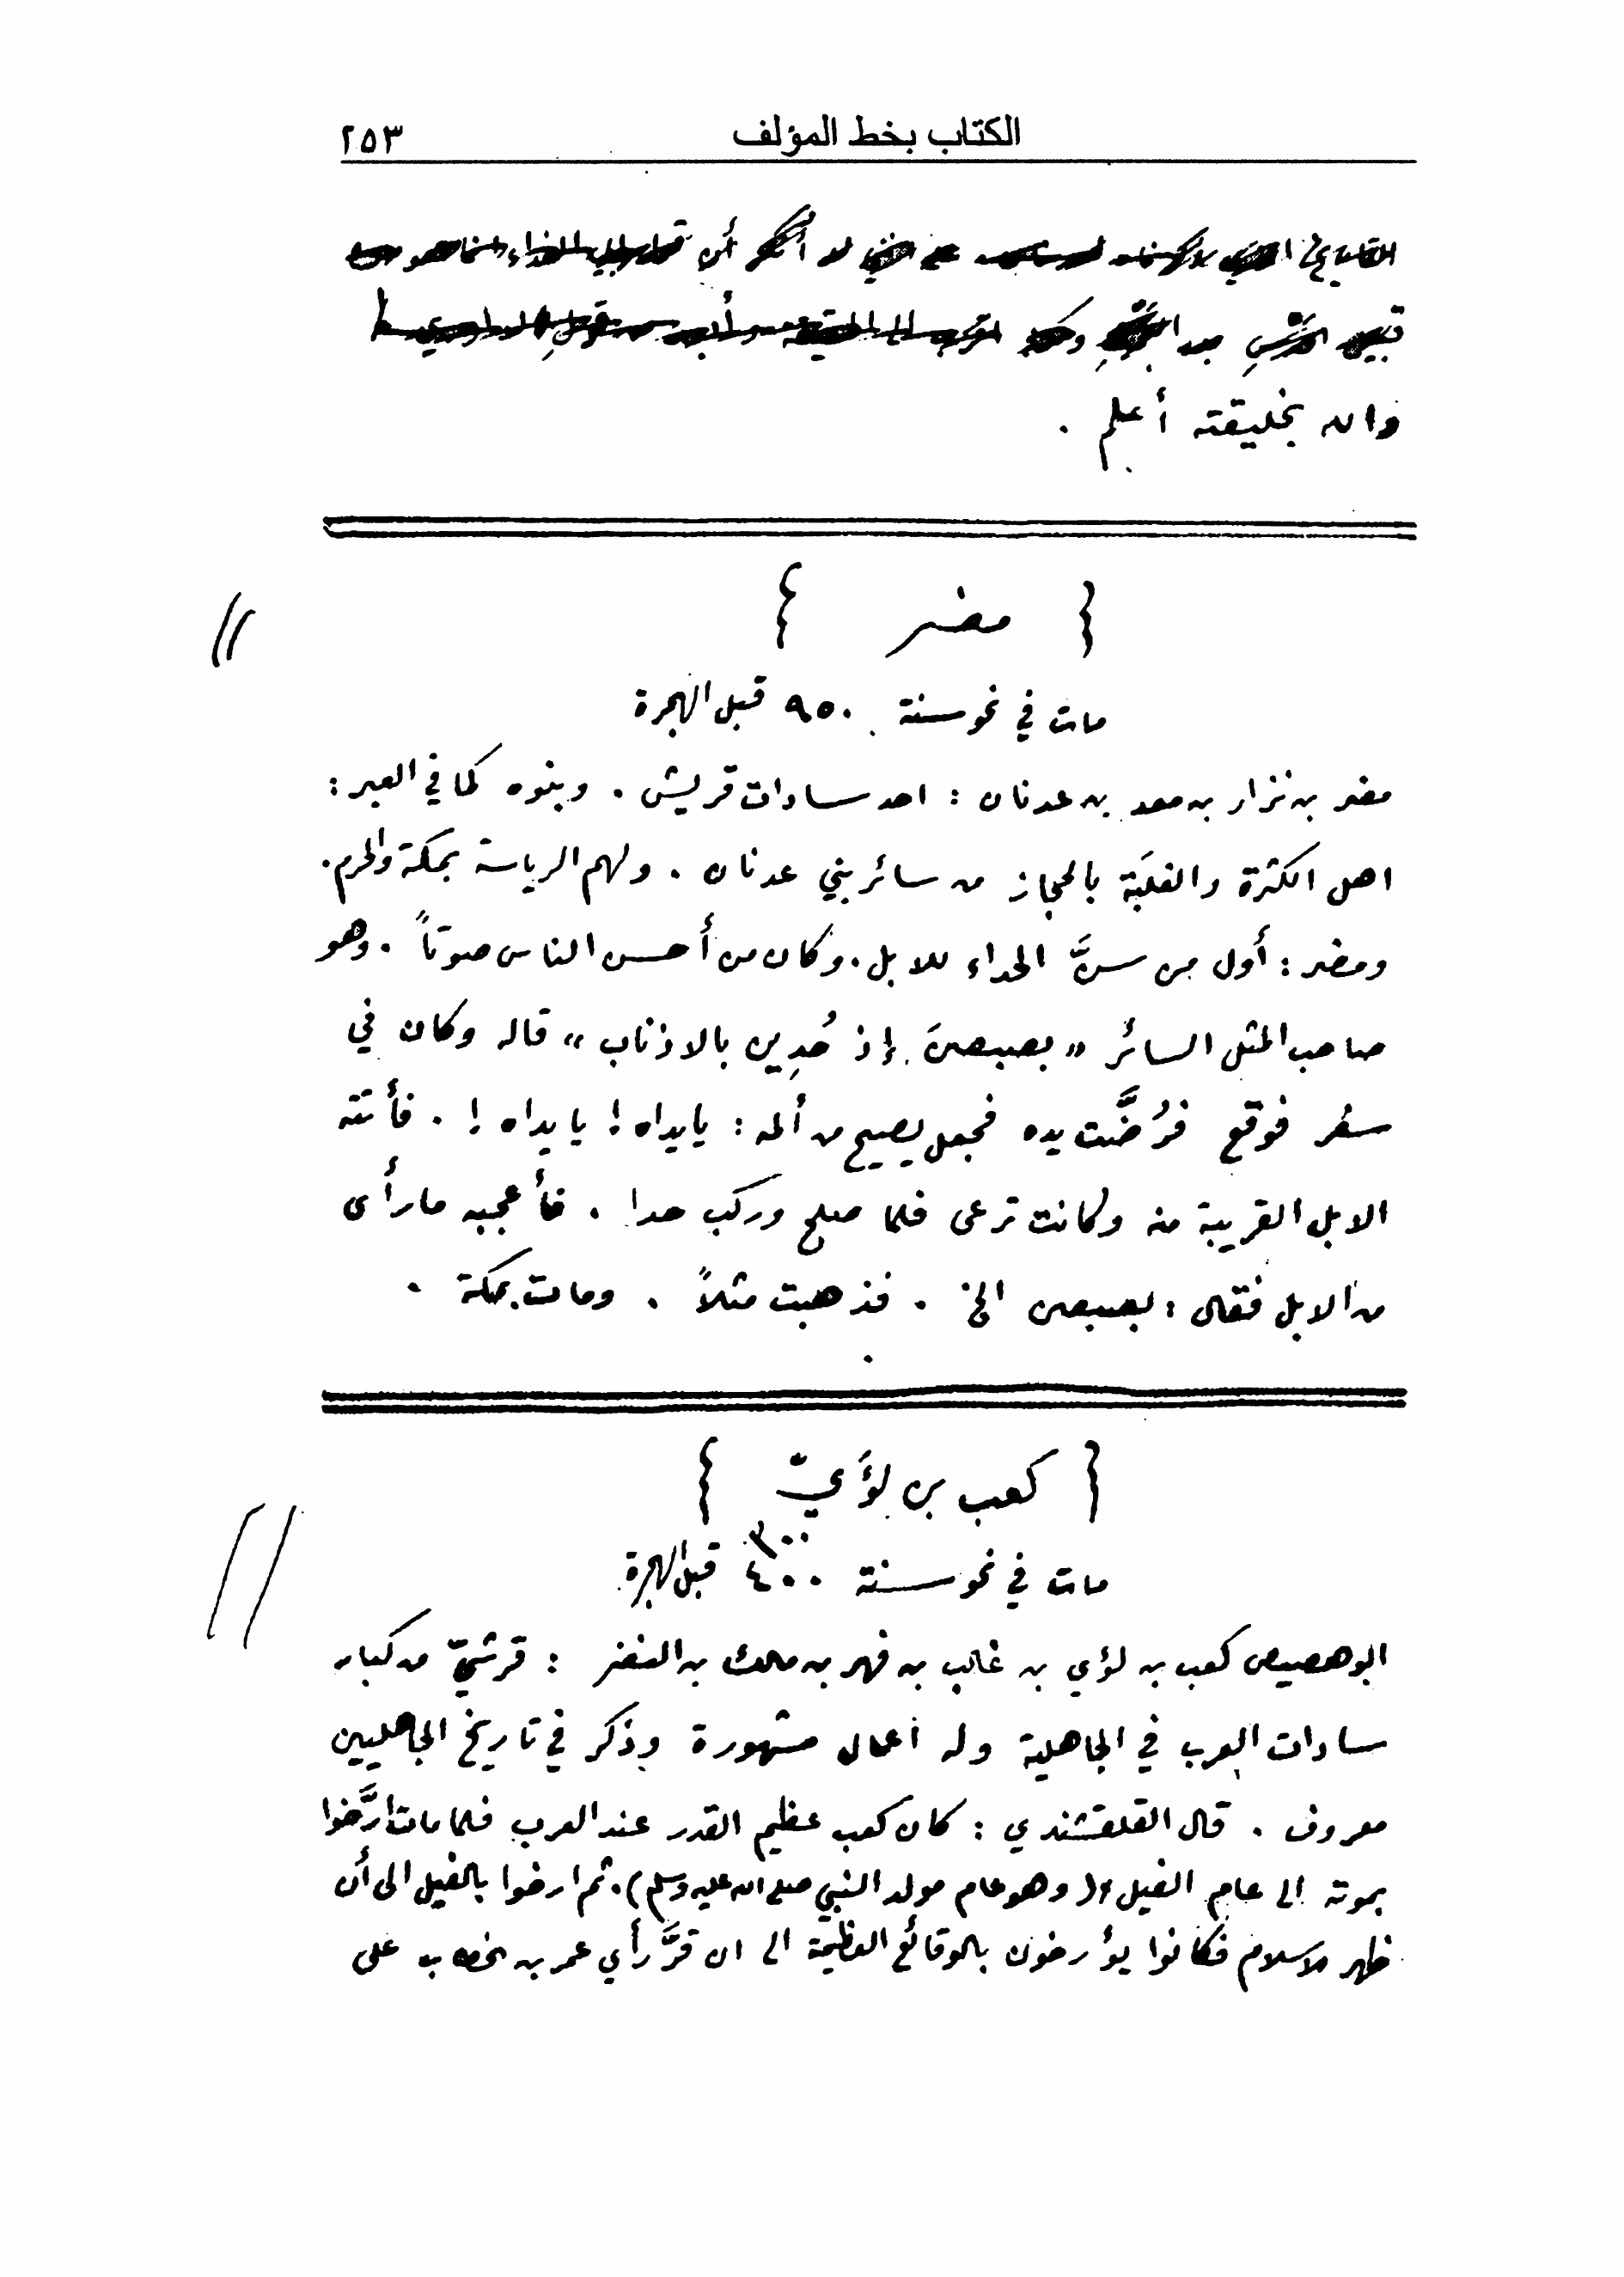 الكتاب بخط المؤلف ٢٥٣
لا أنكر أن
بعد
والله بخليقته أعلم .
{ مضر }
مات في نحو سنة ٩٥٠ قبل الهجرة
مضر بن نزار بن معد بن عدنان : احد سادات قريش . وبنوه كما في العبر :
اهل الكثرة والغلَبَة بالحجاز من سائر بني عدنان . ولهم الرياسة بمكة والحرم .
ومضر : أول من سنَّ الحداء للابل . وكان من أحسن الناس صوتاً . وهو
صاحب المثل السائر « بصبصنَ إذ حُدِين بالاذناب » قاله وكان في
سفر فوقع فرُضَّت يده فجعل يصيح من ألمه : يا يداه ! يا يداه ! . فأتته
الابل القريبة منه وكانت ترعى فلما صلح وركب حدا . فأعجبه ما رأى
من الابل فقال : بصبصن الخ . فذهبت مثلاً . ومات بمكة .
{ كعب بن لؤَيّ }
٣٠٠
مات في نحو سنة ٤٠٠ قبل الهجرة
ابو هصيص كعب بن لؤي بن غالب بن فهر بن مالك بن النضر : قرشيّ من كبار
سادات العرب في الجاهلية وله اعمال مشهورة وذكر في تاريخ الجاهليين
معروف . قال القلقشندي : كان كعب عظيم القدر عند العرب فلما مات ارَّخوا
بموته الى عام الفيل ( وهو عام مولد النبي صلى الله عليه وسلم ) . ثم ارخوا بالفيل الى أن
ظهر الاسلام فكانوا يؤرخون بالوقائع العظيمة الى ان قرَّ رأي عمر بن الخطاب على